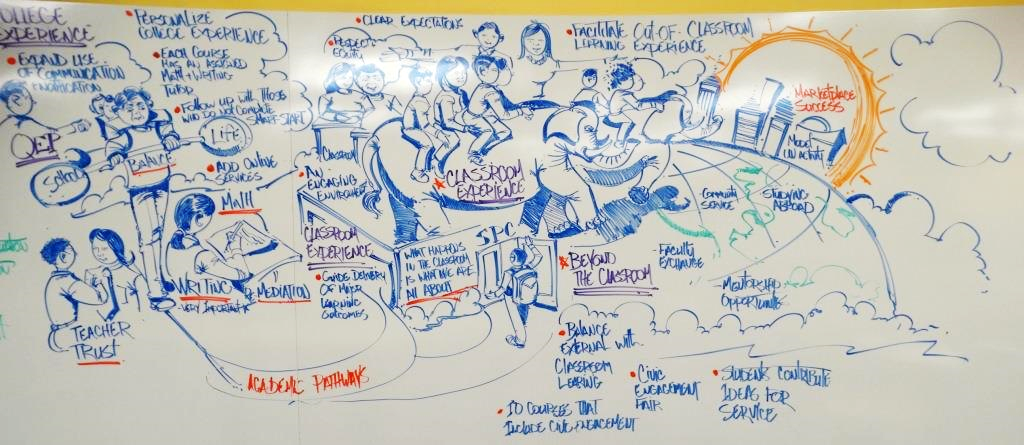 COLLEGE
EXPERIENCE
• EXPAND USE
OF COMMUNICATION
NOTIFICATION
QEP
• PERSONALIZE
COLLEGE EXPERIENCE
• EACH COURSE
HAS AN ASSIGNED
MATH + WRITING
TUTOR
• FOLLOW UP WITH THOSE
WHO DO NOT COMPLETE
SMART START
LIFE
SCHOOL
BALANCE
• ADD ONLINE
SERVICES
MATH
WRITING
VERY IMPORTANT
REMEDIATION
TEACHER
TRUST
ACADEMIC PATHWAYS
• CLEAR EXPECTATIONS
• RESPECT
EQUITY
CLASSROOM
• AN
ENGAGING
ENVIRONMENT
CLASSROOM
EXPERIENCE
• GUIDE DELIVERY
OF MATER
LEARNING
OUTCOMES
CLASSROOM
EXPERIENCE
WHAT HAPPENS
IN THE CLASSROOM
IS WHAT WE ARE
ALL ABOUT
SPC
• FACILITATE OUT-OF-CLASSROOM
LEARNING EXPERIENCE
MARKETPLACE
SUCCESS
MODEL
UN ACTIVITY
COMMUNITY
SERVICE
STUDYING
ABROAD
BEYOND
THE CLASSROOM
- FACULTY
EXCHANGE
- MENTORSHIP
OPPORTUNITIES
• BALANCE
EXTERNAL WITH
CLASSROOM
LEARNING
• CIVIC
ENGAGEMENT
FAIR
• STUDENTS CONTRIBUTE
IDEAS FOR
SERVICE
• ID COURSES THAT
INCLUDE CIVIC ENGAGEMENT